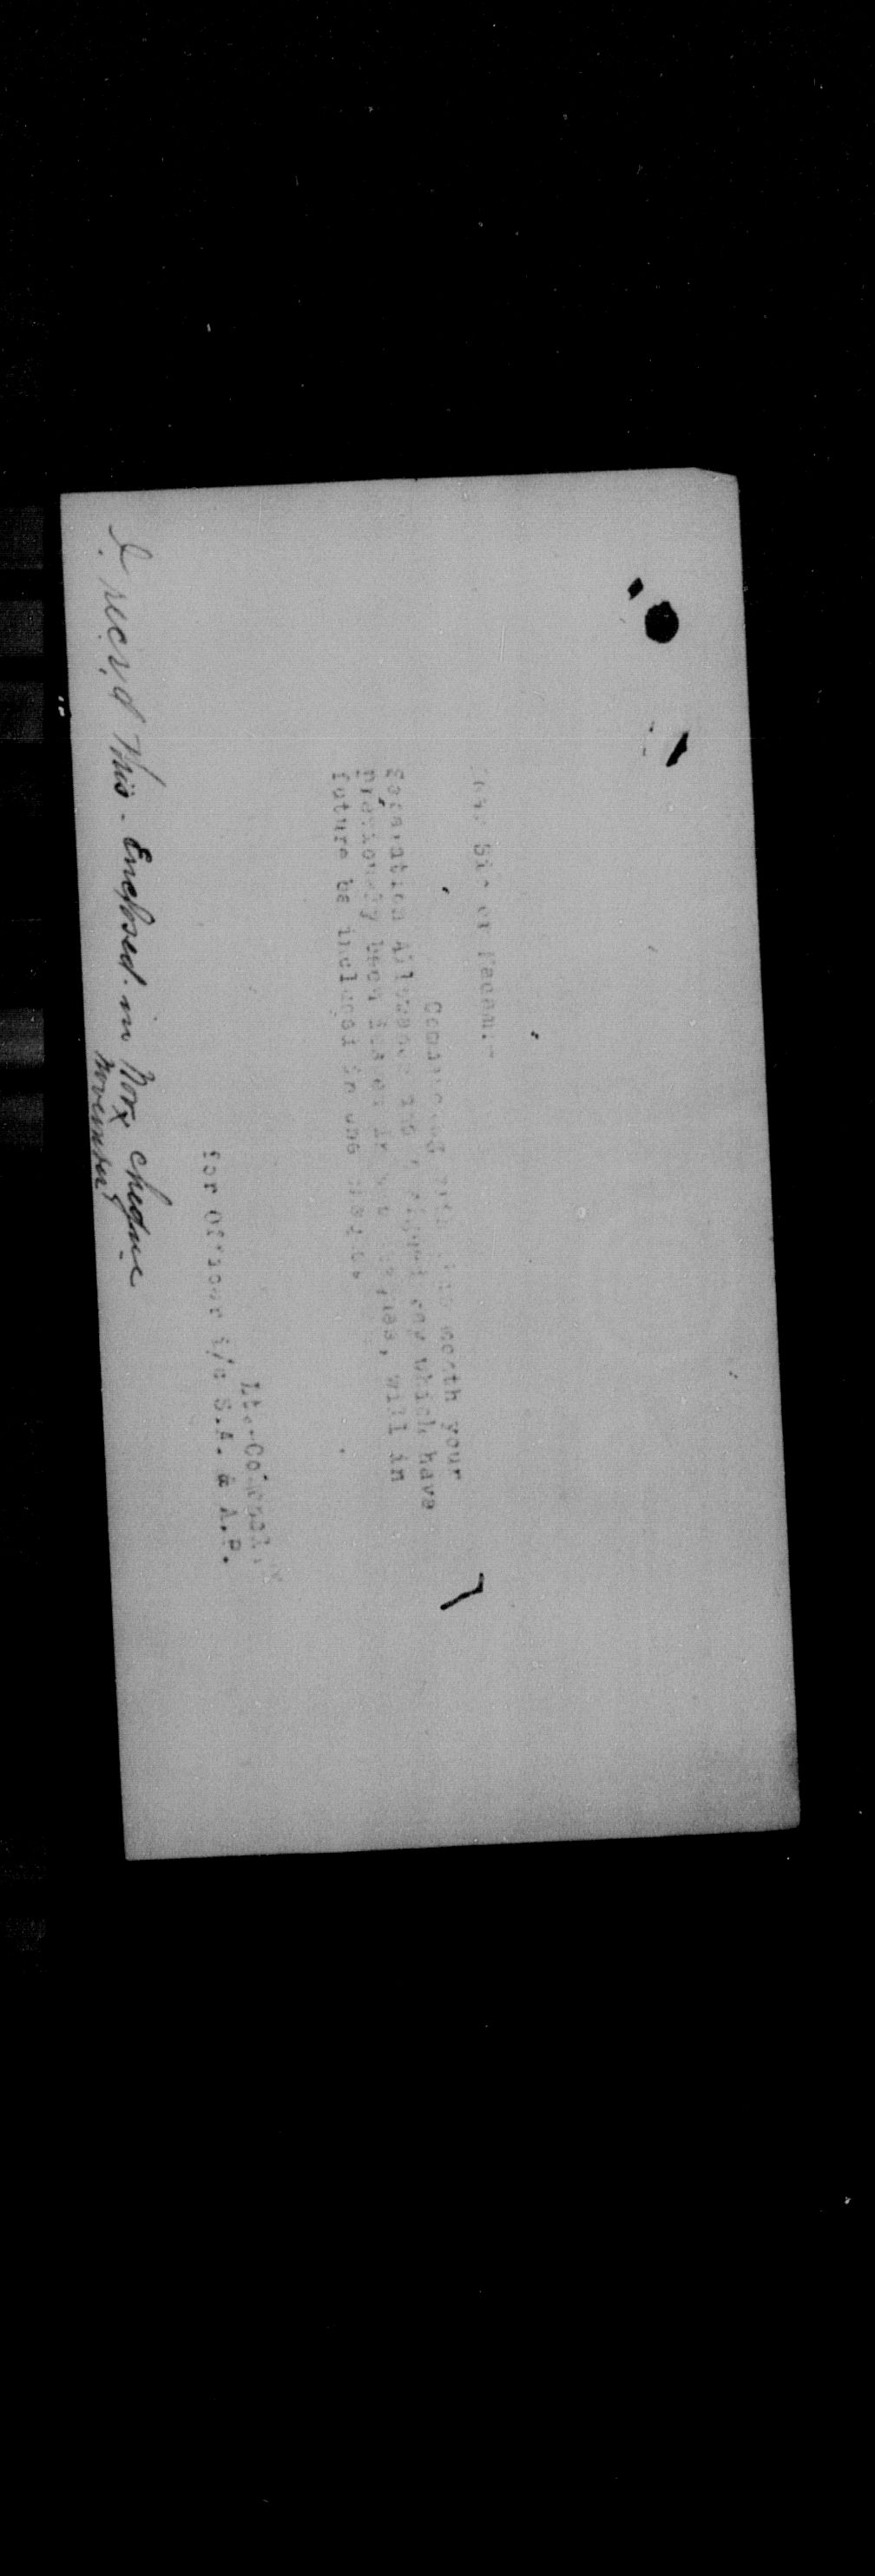 Dear Sir or Madam:-
Commencing with this month your
Separation Allowance and Assigned Pay which have
previously been issued in two cheques, will in
future be included in one cheque.
Lt.-Colonel,
for Officer i/c S.A. & A.P.
I recv'd this - Enclosed in Nov. cheque
November